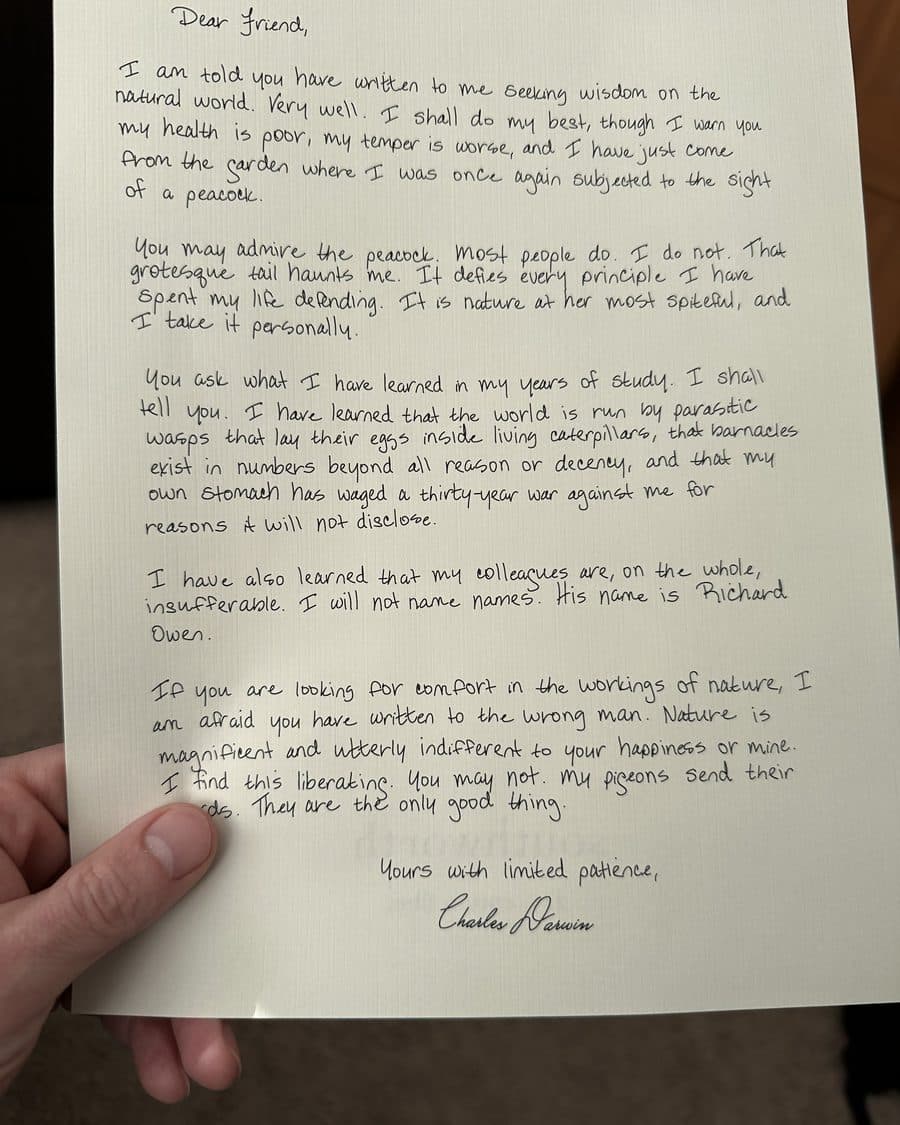 Dear friend,
I am told you have written to me seeking wisdom on the
natural world. Very well. I shall do my best, though I warn you
my health is poor, my temper is worse, and I have just come
from the garden where I was once again subjected to the sight
of a peacock.
You may admire the peacock. Most people do. I do not. That
grotesque tail haunts me. It defies every principle I have
spent my life defending. It is nature at her most spiteful, and
I take it personally.
You ask what I have learned in my years of study. I shall
tell you. I have learned that the world is run by parasitic
wasps that lay their eggs inside living caterpillars, that barnacles
exist in numbers beyond all reason or decency, and that my
own stomach has waged a thirty-year war against me for
reasons it will not disclose.
I have also learned that my colleagues are, on the whole,
insufferable. I will not name names. His name is Richard
Owen.
If you are looking for comfort in the workings of nature, I
am afraid you have written to the wrong man. Nature is
magnificent and utterly indifferent to your happiness or mine.
I find this liberating. You may not. My pigeons send their
rds. They are the only good thing.
southworth
Yours with limited patience,
Charles Darwin